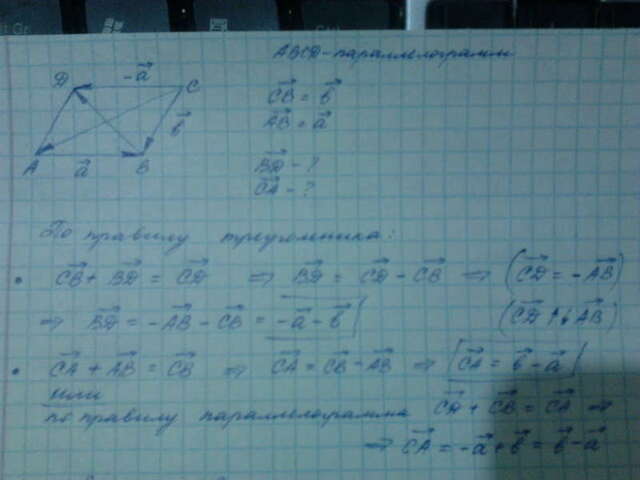 ABCD - параллелограмм
D -a⃗ C
CB⃗ = b⃗
AB⃗ = a⃗
b⃗
A a⃗ B
BD⃗ - ?
CA⃗ - ?
По правилу треугольника:
• CB⃗ + BD⃗ = CD⃗ ⇒ BD⃗ = CD⃗ - CB⃗ ⇒ (CD⃗ = -AB⃗)
⇒ BD⃗ = -AB⃗ - CB⃗ = -a⃗ - b⃗ (CD⃗ ↑↓ AB⃗)
• CA⃗ + AB⃗ = CB⃗ ⇒ CA⃗ = CB⃗ - AB⃗ ⇒ [CA⃗ = b⃗ - a⃗]
или
по правилу параллелограмма CD⃗ + CB⃗ = CA⃗ ⇒
⇒ CA⃗ = -a⃗ + b⃗ = b⃗ - a⃗